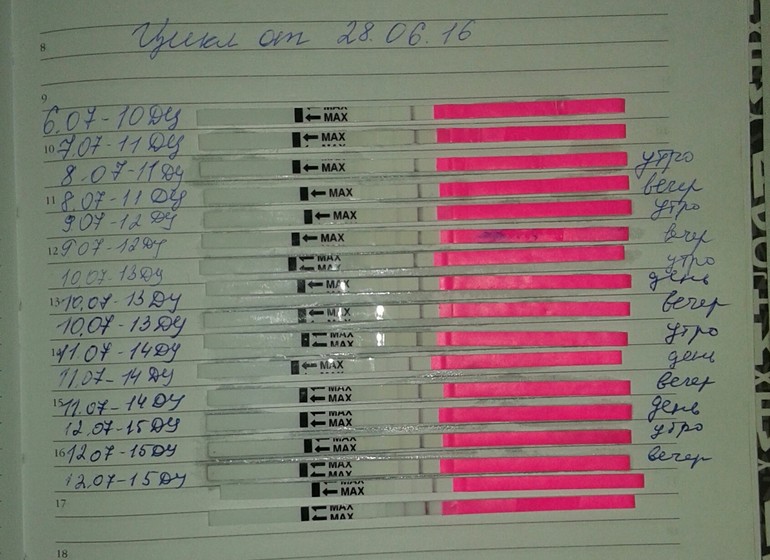 Цикл от 28.06.16
8
9
6.07-10 ДЦ MAX
10 7.07-11 ДЦ MAX
8.07-11 ДЦ MAX утро
11 8.07-11 ДЦ MAX вечер
9.07-12 ДЦ MAX утро
12 9.07-12 ДЦ MAX вечер
10.07-13 ДЦ MAX утро
13 10.07-13 ДЦ MAX день
10.07-13 ДЦ MAX вечер
14 11.07-14 ДЦ MAX утро
11.07-14 ДЦ MAX день
15 11.07-14 ДЦ MAX вечер
12.07-15 ДЦ MAX день
16 12.07-15 ДЦ MAX утро
12.07-15 ДЦ MAX вечер
17 MAX
MAX
18